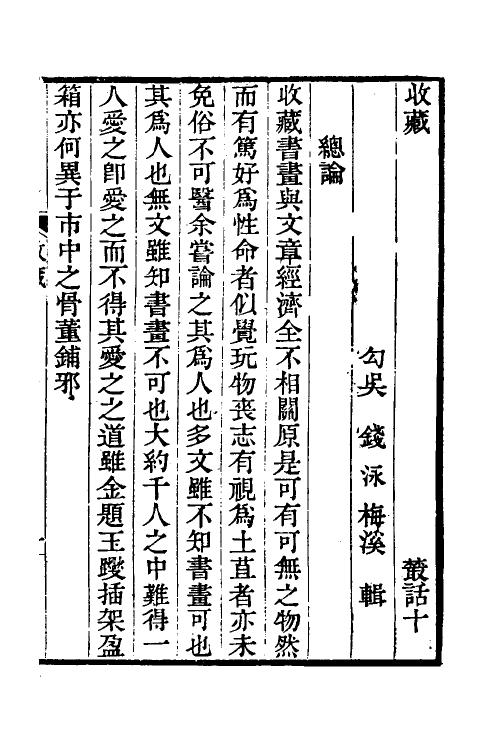 收藏 叢話十
勾吳 錢泳 梅溪 輯
總論
收藏書畫與文章經濟全不相關原是可有可無之物然
而有篤好爲性命者似覺玩物喪志有視爲土苴者亦未
免俗不可醫余嘗論之其爲人也多文雖不知書畫可也
其爲人也無文雖知書畫不可也大約千人之中難得一
人愛之卽愛之而不得其愛之之道雖金題玉躞插架盈
箱亦何異于市中之骨董鋪邪